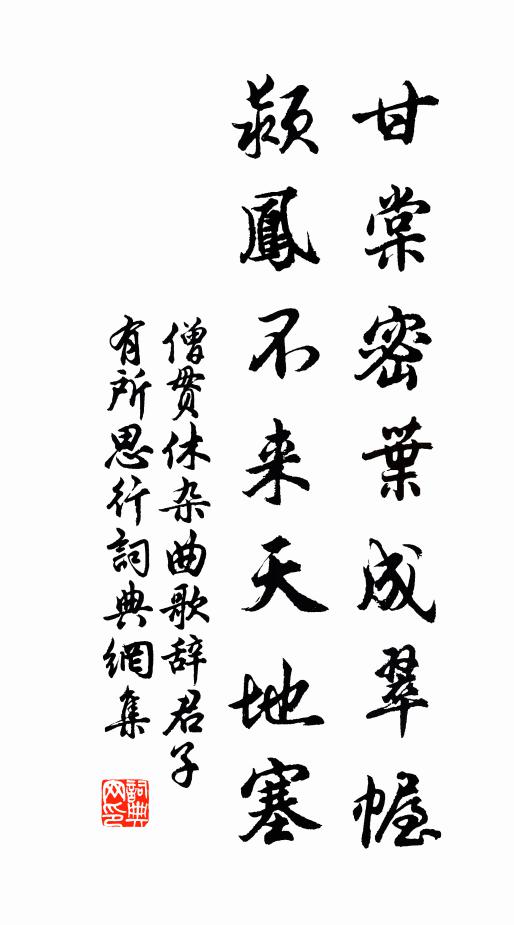 甘棠密葉成翠幄
潁鳳不来天地塞
僧貫休杂曲歌辞君子
有所思行詞典網集
詞典
网印